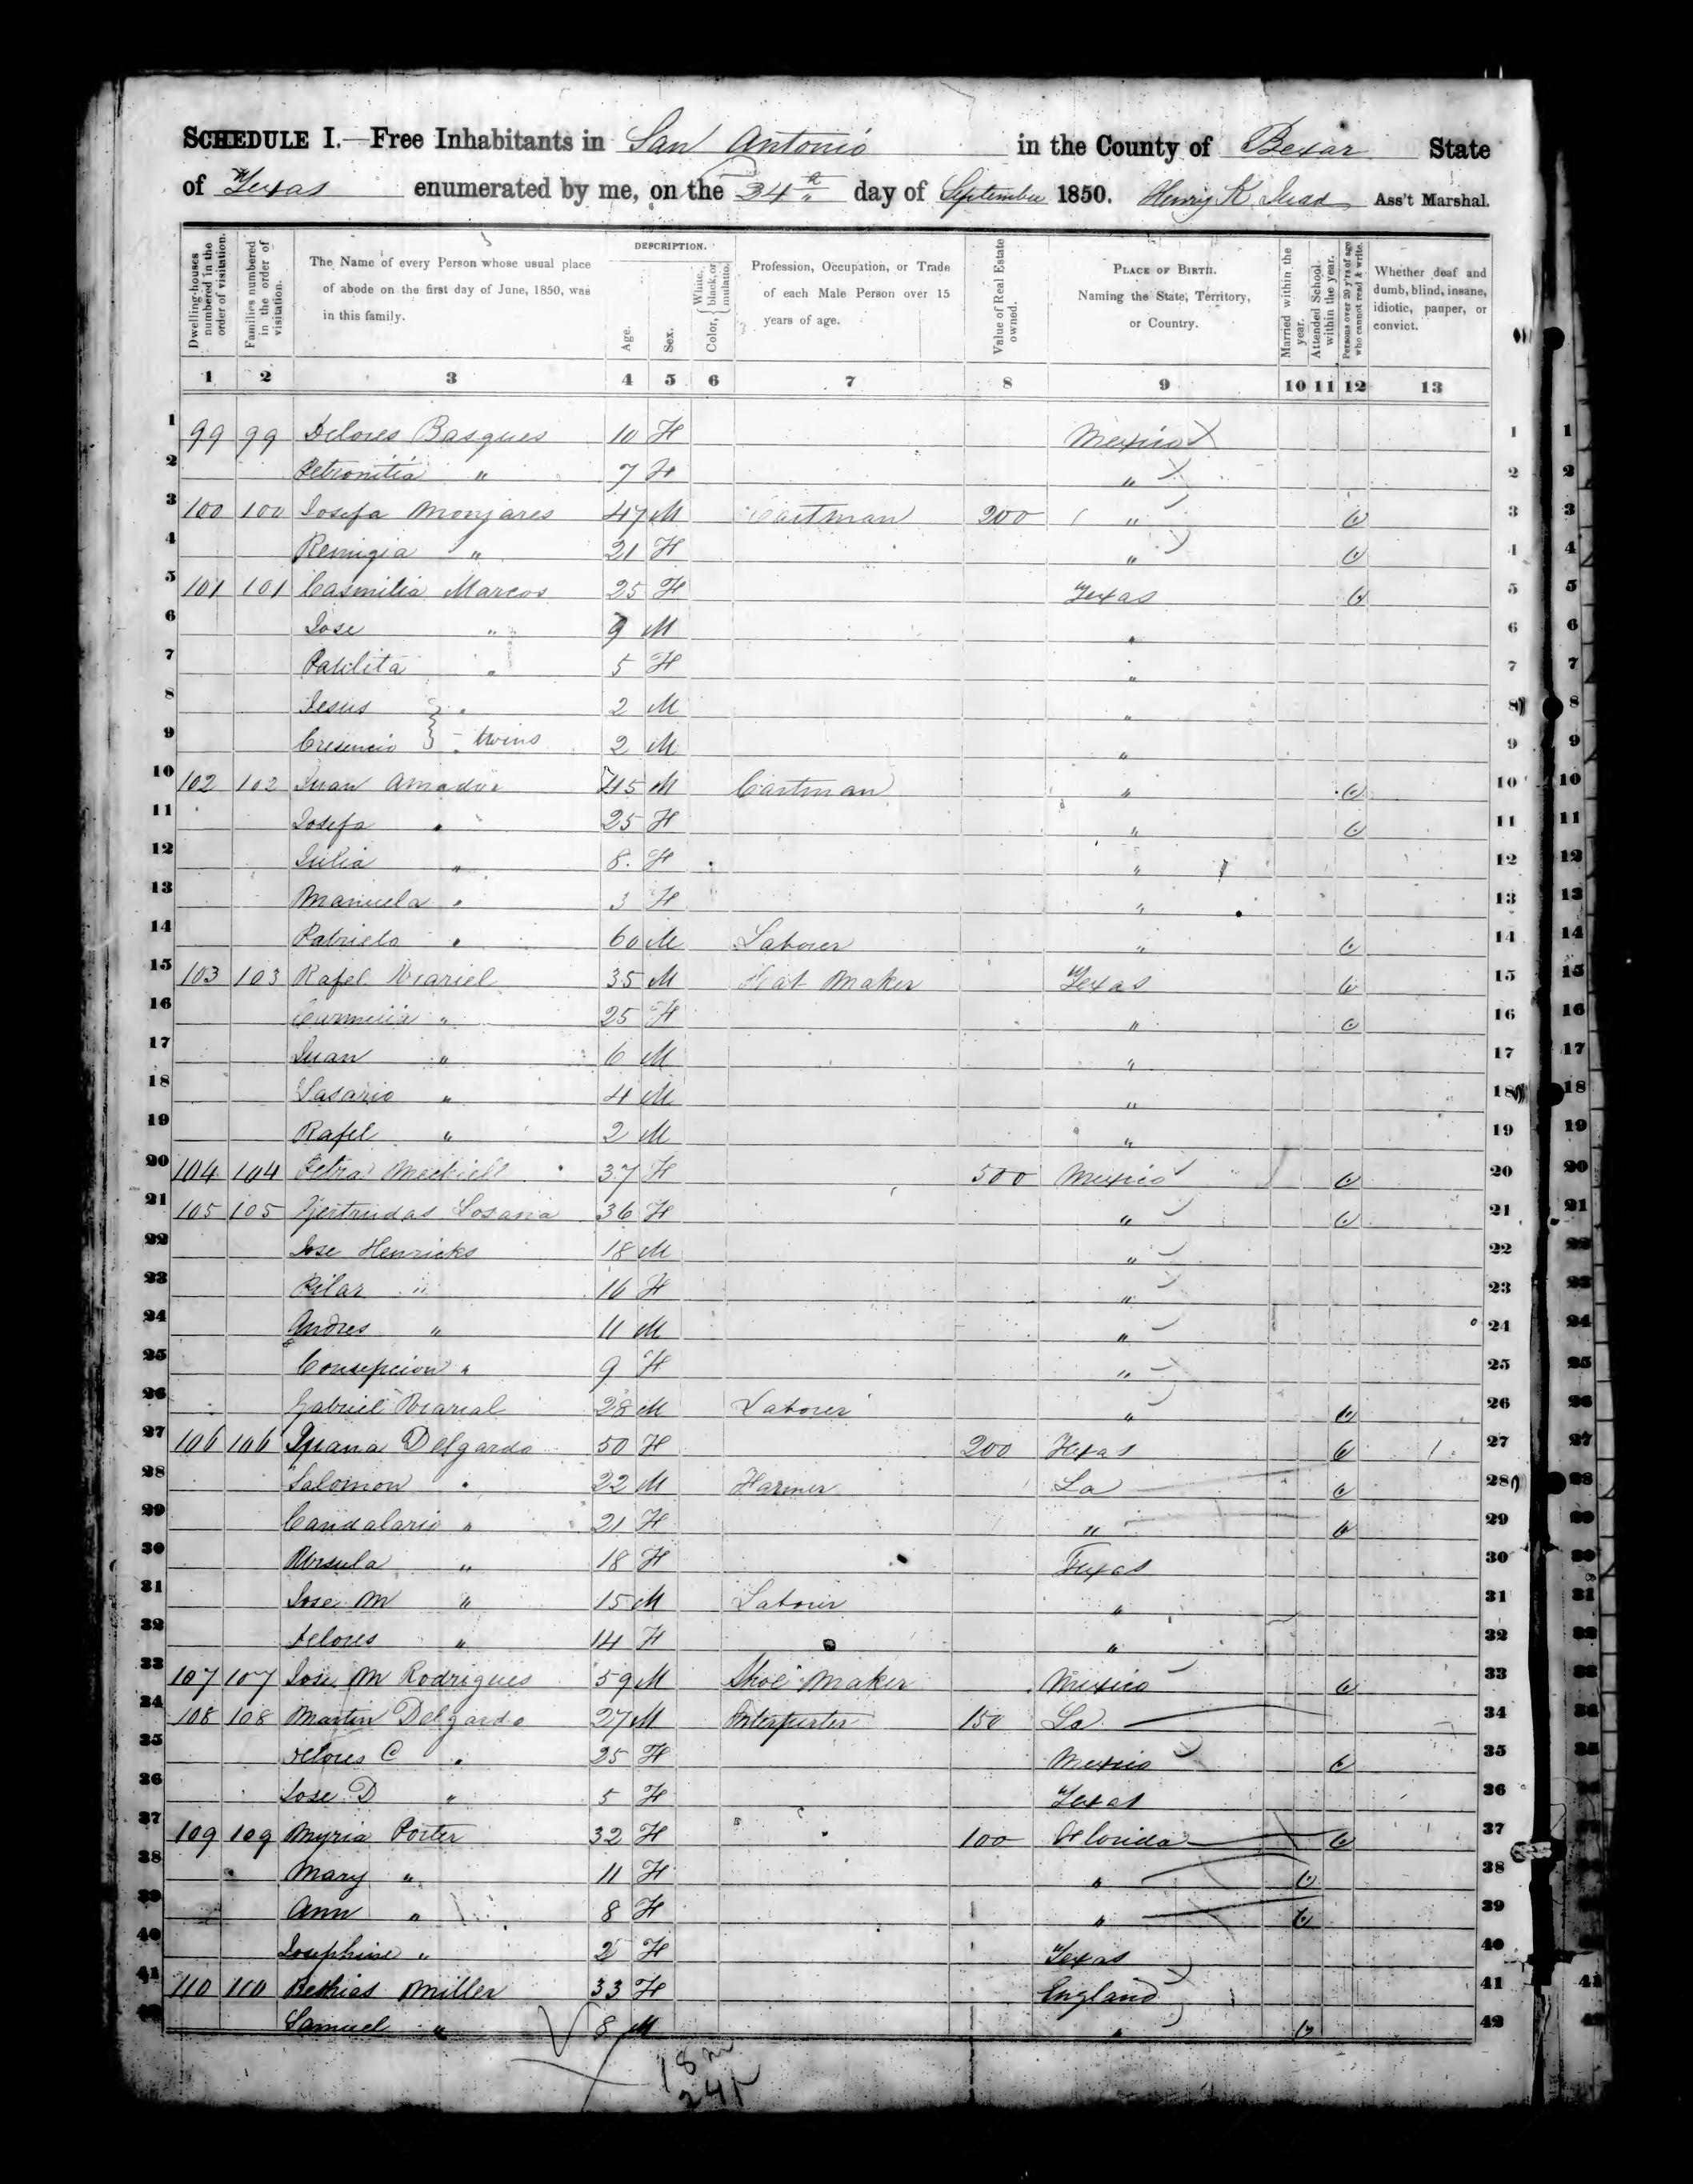 SCHEDULE I.—Free Inhabitants in San Antonio in the County of Bexar State
of Texas enumerated by me, on the 24th day of September 1850. Henry K Ass't Marshal.
Dwelling-houses numbered in the order of visitation.
Families numbered in the order of visitation.
The Name of every Person whose usual place of abode on the first day of June, 1850, was in this family.
DESCRIPTION.
Age.
Sex.
Color, { White, black, or mulatto.
Profession, Occupation, or Trade of each Male Person over 15 years of age.
Value of Real Estate owned.
PLACE OF BIRTH. Naming the State, Territory, or Country.
Married within the year.
Attended School within the year.
Persons over 20 y'rs of age who cannot read & write.
Whether deaf and dumb, blind, insane, idiotic, pauper, or convict.
1 2 3 4 5 6 7 8 9 10 11 12 13
1 99 99 Delores Basques 10 F Mexico 1
2 Petronitia " 7 F " 2
3 100 100 Josefa Monjares 47 M Cartman 200 " 3
4 Remigia " 21 F " 4
5 101 101 Casmilia Marcos 25 F Texas 5
6 Jose " 9 M " 6
7 Pablita " 5 F " 7
8 Jesus " 2 M " 8
9 Cresencio } twins 2 M " 9
10 102 102 Juan Amador 45 M Cartman " 10
11 Josefa " 25 F " 11
12 Julia " 8 F " 12
13 Manuela " 3 F " 13
14 " 60 M Laborer " 14
15 103 103 Rafel 35 M Hat Maker Texas 15
16 " 25 F " 16
17 Juan " 6 M " 17
18 Lasario " 4 M " 18
19 Rafel " 2 M " 19
20 104 104 Petra 37 F 500 Mexico 20
21 105 105 Gertrudas Losana 36 F " 21
22 Jose Henricks 18 M " 22
23 Pilar " 16 F " 23
24 Andres " 11 M " 24
25 Consepcion " 9 F " 25
26 Gabriel 28 M Laborer " 26
27 106 106 Juana Delgardo 50 F 200 Texas 1 27
28 Salomon " 22 M Farmer La 28
29 Candalario " 21 F " 29
30 Ursula " 18 F Texas 30
31 Jose M " 15 M Laborer " 31
32 Delores " 14 F " 32
33 107 107 Jose M Rodrigues 59 M Shoe Maker Mexico 33
34 108 108 Martin Delgardo 27 M Interperter 150 La 34
35 Delores C " 25 F Mexico 35
36 Jose D " 5 F Texas 36
37 109 109 Myria Porter 32 F 100 Florida 37
38 Mary " 11 F " 38
39 Ann " 8 F " 39
40 Josephine " 2 F Texas 40
41 110 110 Bethias Miller 33 F England 41
42 Samuel " 8 M " 42
18 m
24 f